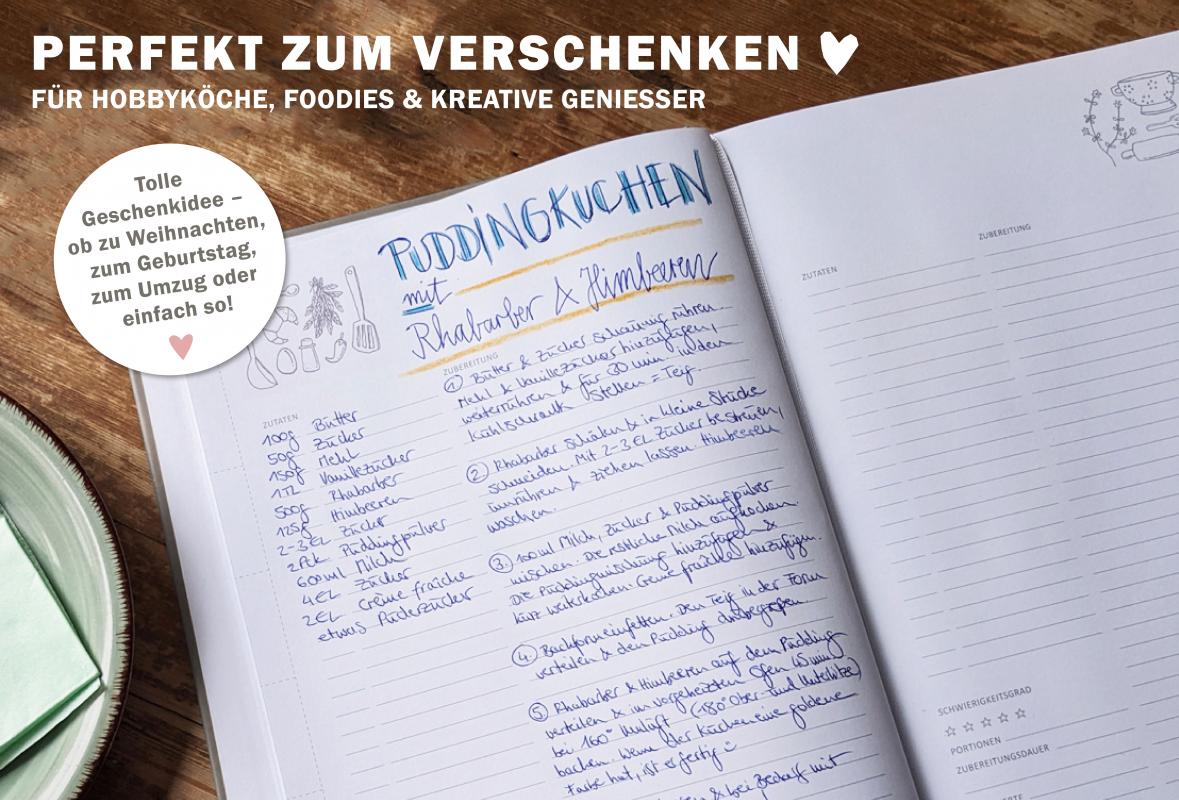 PERFEKT ZUM VERSCHENKEN
FÜR HOBBYKÖCHE, FOODIES & KREATIVE GENIESSER
Tolle
Geschenkidee –
ob zu Weihnachten,
zum Geburtstag,
zum Umzug oder
einfach so!
PUDDINGKUCHEN
mit
Rhabarber & Himbeeren
ZUTATEN
100g Butter
50g Zucker
150g Mehl
1TL Vanillezucker
500g Rhabarber
125g Himbeeren
2-3EL Zucker
2Pck Puddingpulver
600ml Milch
4EL Zucker
2EL Creme fraîche
etwas Puderzucker
ZUBEREITUNG
① Butter & Zucker schaumig rühren.
Mehl & Vanillezucker hinzufügen,
weiterrühren & für 30 min in den
Kühlschrank stellen = Teig.
② Rhabarber schälen & in kleine Stücke
schneiden. Mit 2-3 EL Zucker bestreuen,
umrühren & ziehen lassen. Himbeeren
waschen.
③ 100ml Milch, Zucker & Puddingpulver
mischen. Die restliche Milch aufkochen.
Die Puddingmischung hinzufügen &
kurz weiterkochen. Creme fraîche hinzufügen.
④ Backform einfetten. Den Teig in der Form
verteilen & den Pudding
⑤ Rhabarber & Himbeeren auf dem Pudding
verteilen & im vorgeheizten Ofen 45 min
bei 160° Umluft (180° Ober- und Unterhitze)
backen. Wenn der Kuchen eine goldene
Farbe hat, ist er fertig
& bei Bedarf mit
ZUTATEN
ZUBEREITUNG
SCHWIERIGKEITSGRAD
PORTIONEN
ZUBEREITUNGSDAUER